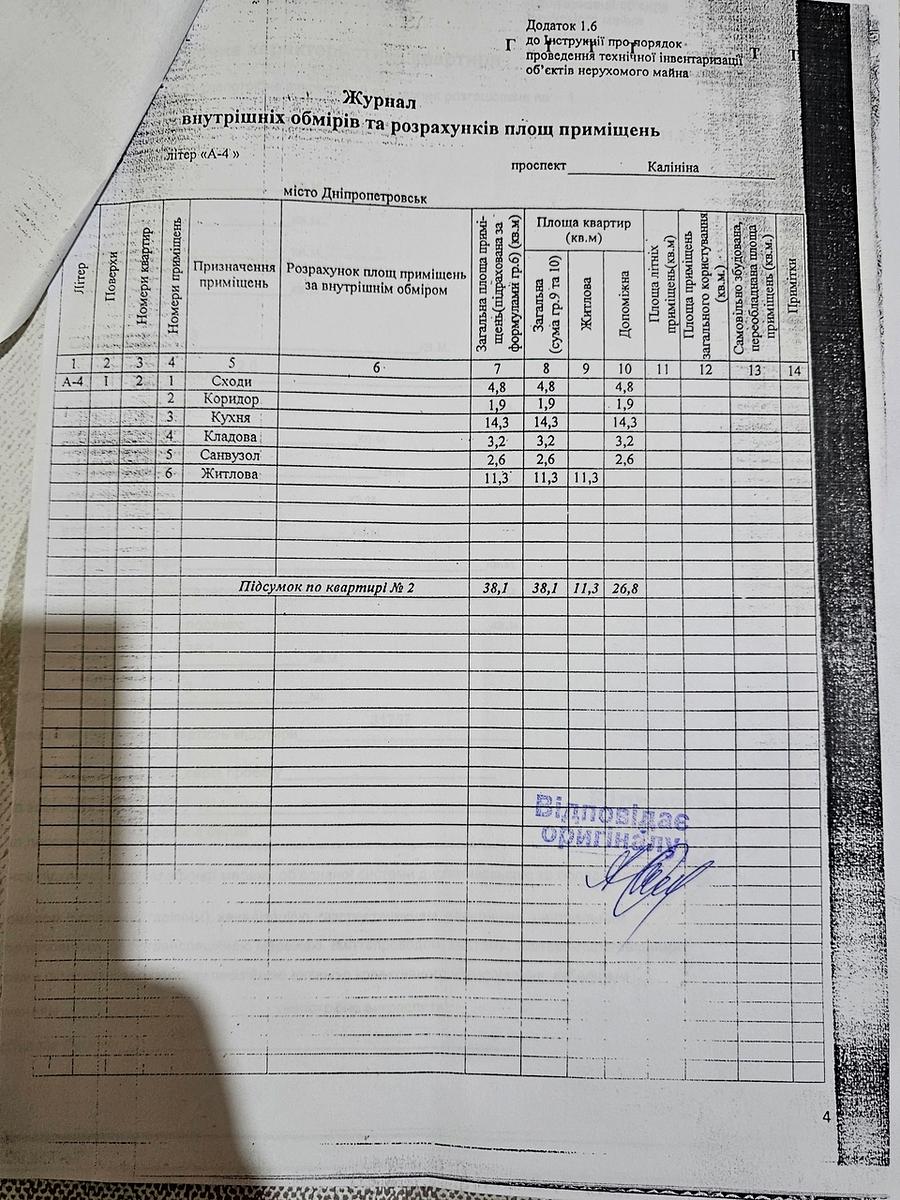 Додаток 1.6
до Інструкції про порядок
проведення технічної інвентаризації
об'єктів нерухомого майна
Г Т Т
Журнал
внутрішніх обмірів та розрахунків площ приміщень
літер «А-4 »
проспект Калініна
місто Дніпропетровськ
Літер
Поверхи
Номери квартир
Номери приміщень
Призначення приміщень
Розрахунок площ приміщень за внутрішнім обміром
Загальна площа приміщень(підрахована за формулами гр.6) (кв.м)
Площа квартир (кв.м)
Загальна (сума гр.9 та 10)
Житлова
Допоміжна
Площа літніх приміщень(кв.м)
Площа приміщень загального користування (кв.м.)
Самовільно збудована, переобладнана площа приміщень (кв.м.)
Примітки
1 2 3 4 5 6 7 8 9 10 11 12 13 14
А-4 1 2 1 Сходи 4,8 4,8 4,8
2 Коридор 1,9 1,9 1,9
3 Кухня 14,3 14,3 14,3
4 Кладова 3,2 3,2 3,2
5 Санвузол 2,6 2,6 2,6
6 Житлова 11,3 11,3 11,3
Підсумок по квартирі № 2 38,1 38,1 11,3 26,8
Відповідає
оригіналу
4